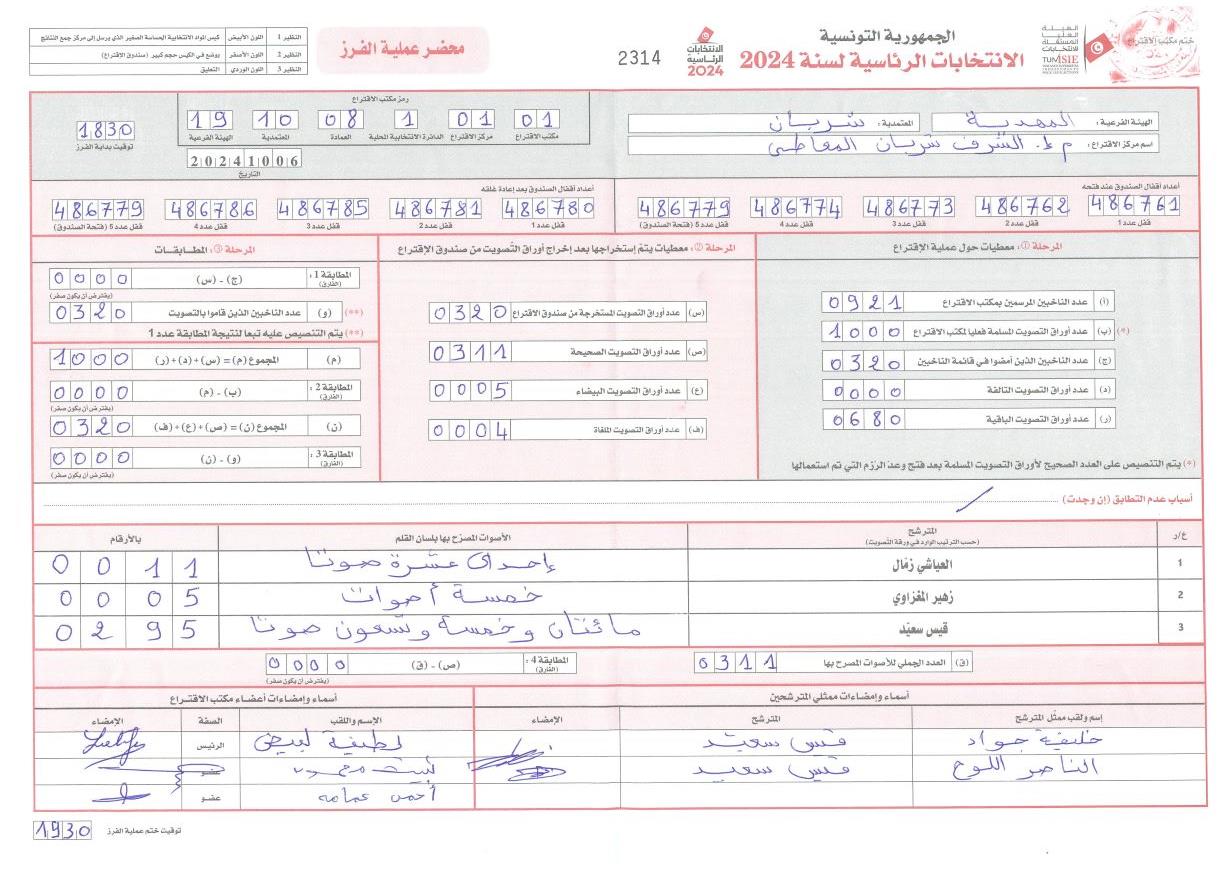 الجمهورية التونسية
الانتخابات الرئاسية لسنة 2024
الهيئة العليا المستقلة للانتخابات
TUNISIE
ختم مكتب الاقتراع
الانتخابات الرئاسية 2024
2314
محضر عملية الفرز
النظير 1 اللون الأبيض كيس المواد الانتخابية الحساسة الصغير الذي يرسل إلى مركز جمع النتائج
النظير 2 اللون الأصفر يوضع في الكيس حجم كبير (صندوق الاقتراع)
النظير 3 اللون الوردي التعليق
الهيئة الفرعية : المهدية المعتمدية : شربان
اسم مركز الاقتراع : م إ. الشرف شربان المعاطي
رمز مكتب الاقتراع
01 01 1 08 10 19
مكتب الاقتراع مركز الاقتراع الدائرة الانتخابية المحلية العمادة المعتمدية الهيئة الفرعية
20241006
التاريخ
1830
توقيت بداية الفرز
أعداد أقفال الصندوق عند فتحه
486761 486762 486773 486774 486779
قفل عدد 1 قفل عدد 2 قفل عدد 3 قفل عدد 4 قفل عدد 5 (فتحة الصندوق)
أعداد أقفال الصندوق بعد إعادة غلقه
486780 486781 486785 486786 486779
قفل عدد 1 قفل عدد 2 قفل عدد 3 قفل عدد 4 قفل عدد 5 (فتحة الصندوق)
المرحلة 1 : معطيات حول عملية الإقتراع
(أ) عدد الناخبين المرسمين بمكتب الاقتراع 0921
(*) (ب) عدد أوراق التصويت المسلمة فعليا لمكتب الاقتراع 1000
(ج) عدد الناخبين الذين أمضوا في قائمة الناخبين 0320
(د) عدد أوراق التصويت التالفة 0000
(ر) عدد أوراق التصويت الباقية 0680
(*) يتم التنصيص على العدد الصحيح لأوراق التصويت المسلمة بعد فتح وعد الرزم التي تم استعمالها
المرحلة 2 : معطيات يتم إستخراجها بعد إخراج أوراق التصويت من صندوق الإقتراع
(س) عدد أوراق التصويت المستخرجة من صندوق الاقتراع 0320
(ص) عدد أوراق التصويت الصحيحة 0311
(ع) عدد أوراق التصويت البيضاء 0005
(ف) عدد أوراق التصويت الملغاة 0004
المرحلة 3 : المطابقات
المطابقة 1 : (الفارق) (ج) - (س) 0000
(يفترض أن يكون صفر)
(**) (و) عدد الناخبين الذين قاموا بالتصويت 0320
(**) يتم التنصيص عليه تبعا لنتيجة المطابقة عدد 1
(م) المجموع (م) = (س) + (د) + (ر) 1000
المطابقة 2 : (الفارق) (ب) - (م) 0000
(يفترض أن يكون صفر)
(ن) المجموع (ن) = (ص) + (ع) + (ف) 0320
المطابقة 3 : (الفارق) (و) - (ن) 0000
(يفترض أن يكون صفر)
أسباب عدم التطابق (إن وجدت) /
ع/د المترشح الأصوات المصرّح بها بلسان القلم بالأرقام
(حسب الترتيب الوارد في ورقة التصويت)
1 العياشي زمّال إحدى عشرة صوتا 0011
2 زهير المغزاوي خمسة أصوات 0005
3 قيس سعيّد مائتان وخمسة وتسعون صوتا 0295
(ق) العدد الجملي للأصوات المصرح بها 0311 المطابقة 4 : (الفارق) (ص) - (ق) 0000
(يفترض أن يكون صفر)
أسماء وإمضاءات ممثلي المترشحين
إسم ولقب ممثّل المترشح المترشح الإمضاء
خليفة جواد قيس سعيد
الناصر اللوح قيس سعيد
أسماء وإمضاءات أعضاء مكتب الاقتراع
الإسم واللقب الصفة الإمضاء
لطيفة لبيض الرئيس
محمود عضو
أحمد عمامه عضو
توقيت ختم عملية الفرز 1930